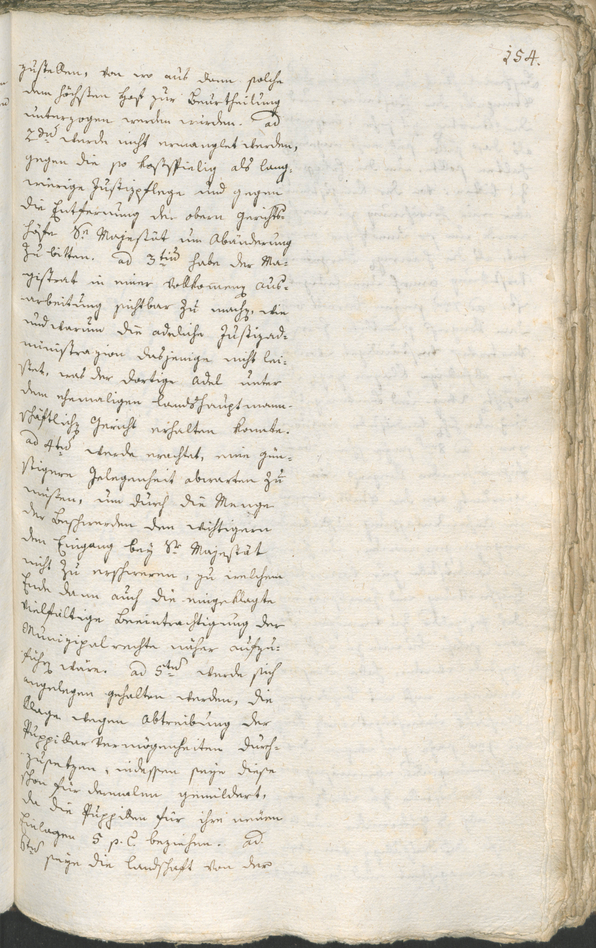 154.
zustellen, von wo aus dann solche
dem höchsten Hof zur Beurtheilung
unterzogen werden würden. ad
2dum wurde nicht ermanglet werden,
gegen die so kostspielig als lang-
wierige Justizpflege und gegen
die Entfernung der obern Gerichts-
höfe Sr Majestät um Abänderung
zu bitten. ad 3tium habe der Ma-
gistrat in einer vollkomenen Aus-
arbeitung sichtbar zu machen, wie
und warum die adeliche Justizad-
ministrazion dasjenige nicht lei-
stet, was der dortige Adel unter
dem ehemaligen Landshauptmann-
schäftlichen Gericht erhalten konnte.
ad 4tum werde erachtet, eine gün-
stigere Gelegenheit abwarten zu
müssen, um durch die Menge
der Beschwerden den wichtigern
den Eingang bey Sr Majestät
nicht zu erschweren, zu welchem
Ende dann auch die eingeklagte
vielfältige Beeinträchtigung der
Munizipalrechte näher aufzu-
führen wäre. ad 5tum werde sich
angelegen gehalten werden, die
Klage wegen Abtreibung der
Puppillarvermögenheiten durch-
zusetzen, indessen seye diese
schon für dermalen gemildert,
da die Puppillen für ihre neuen
Einlagen 5 p. C. beziehen. ad
6tum seye die Landschaft von der